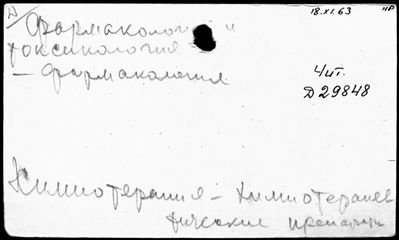 Фармакология и
токсикология –
– Фармакология
18.XI.63
Чит.
Д 29848
Химиотерапия – Химиотерапев
тические препараты